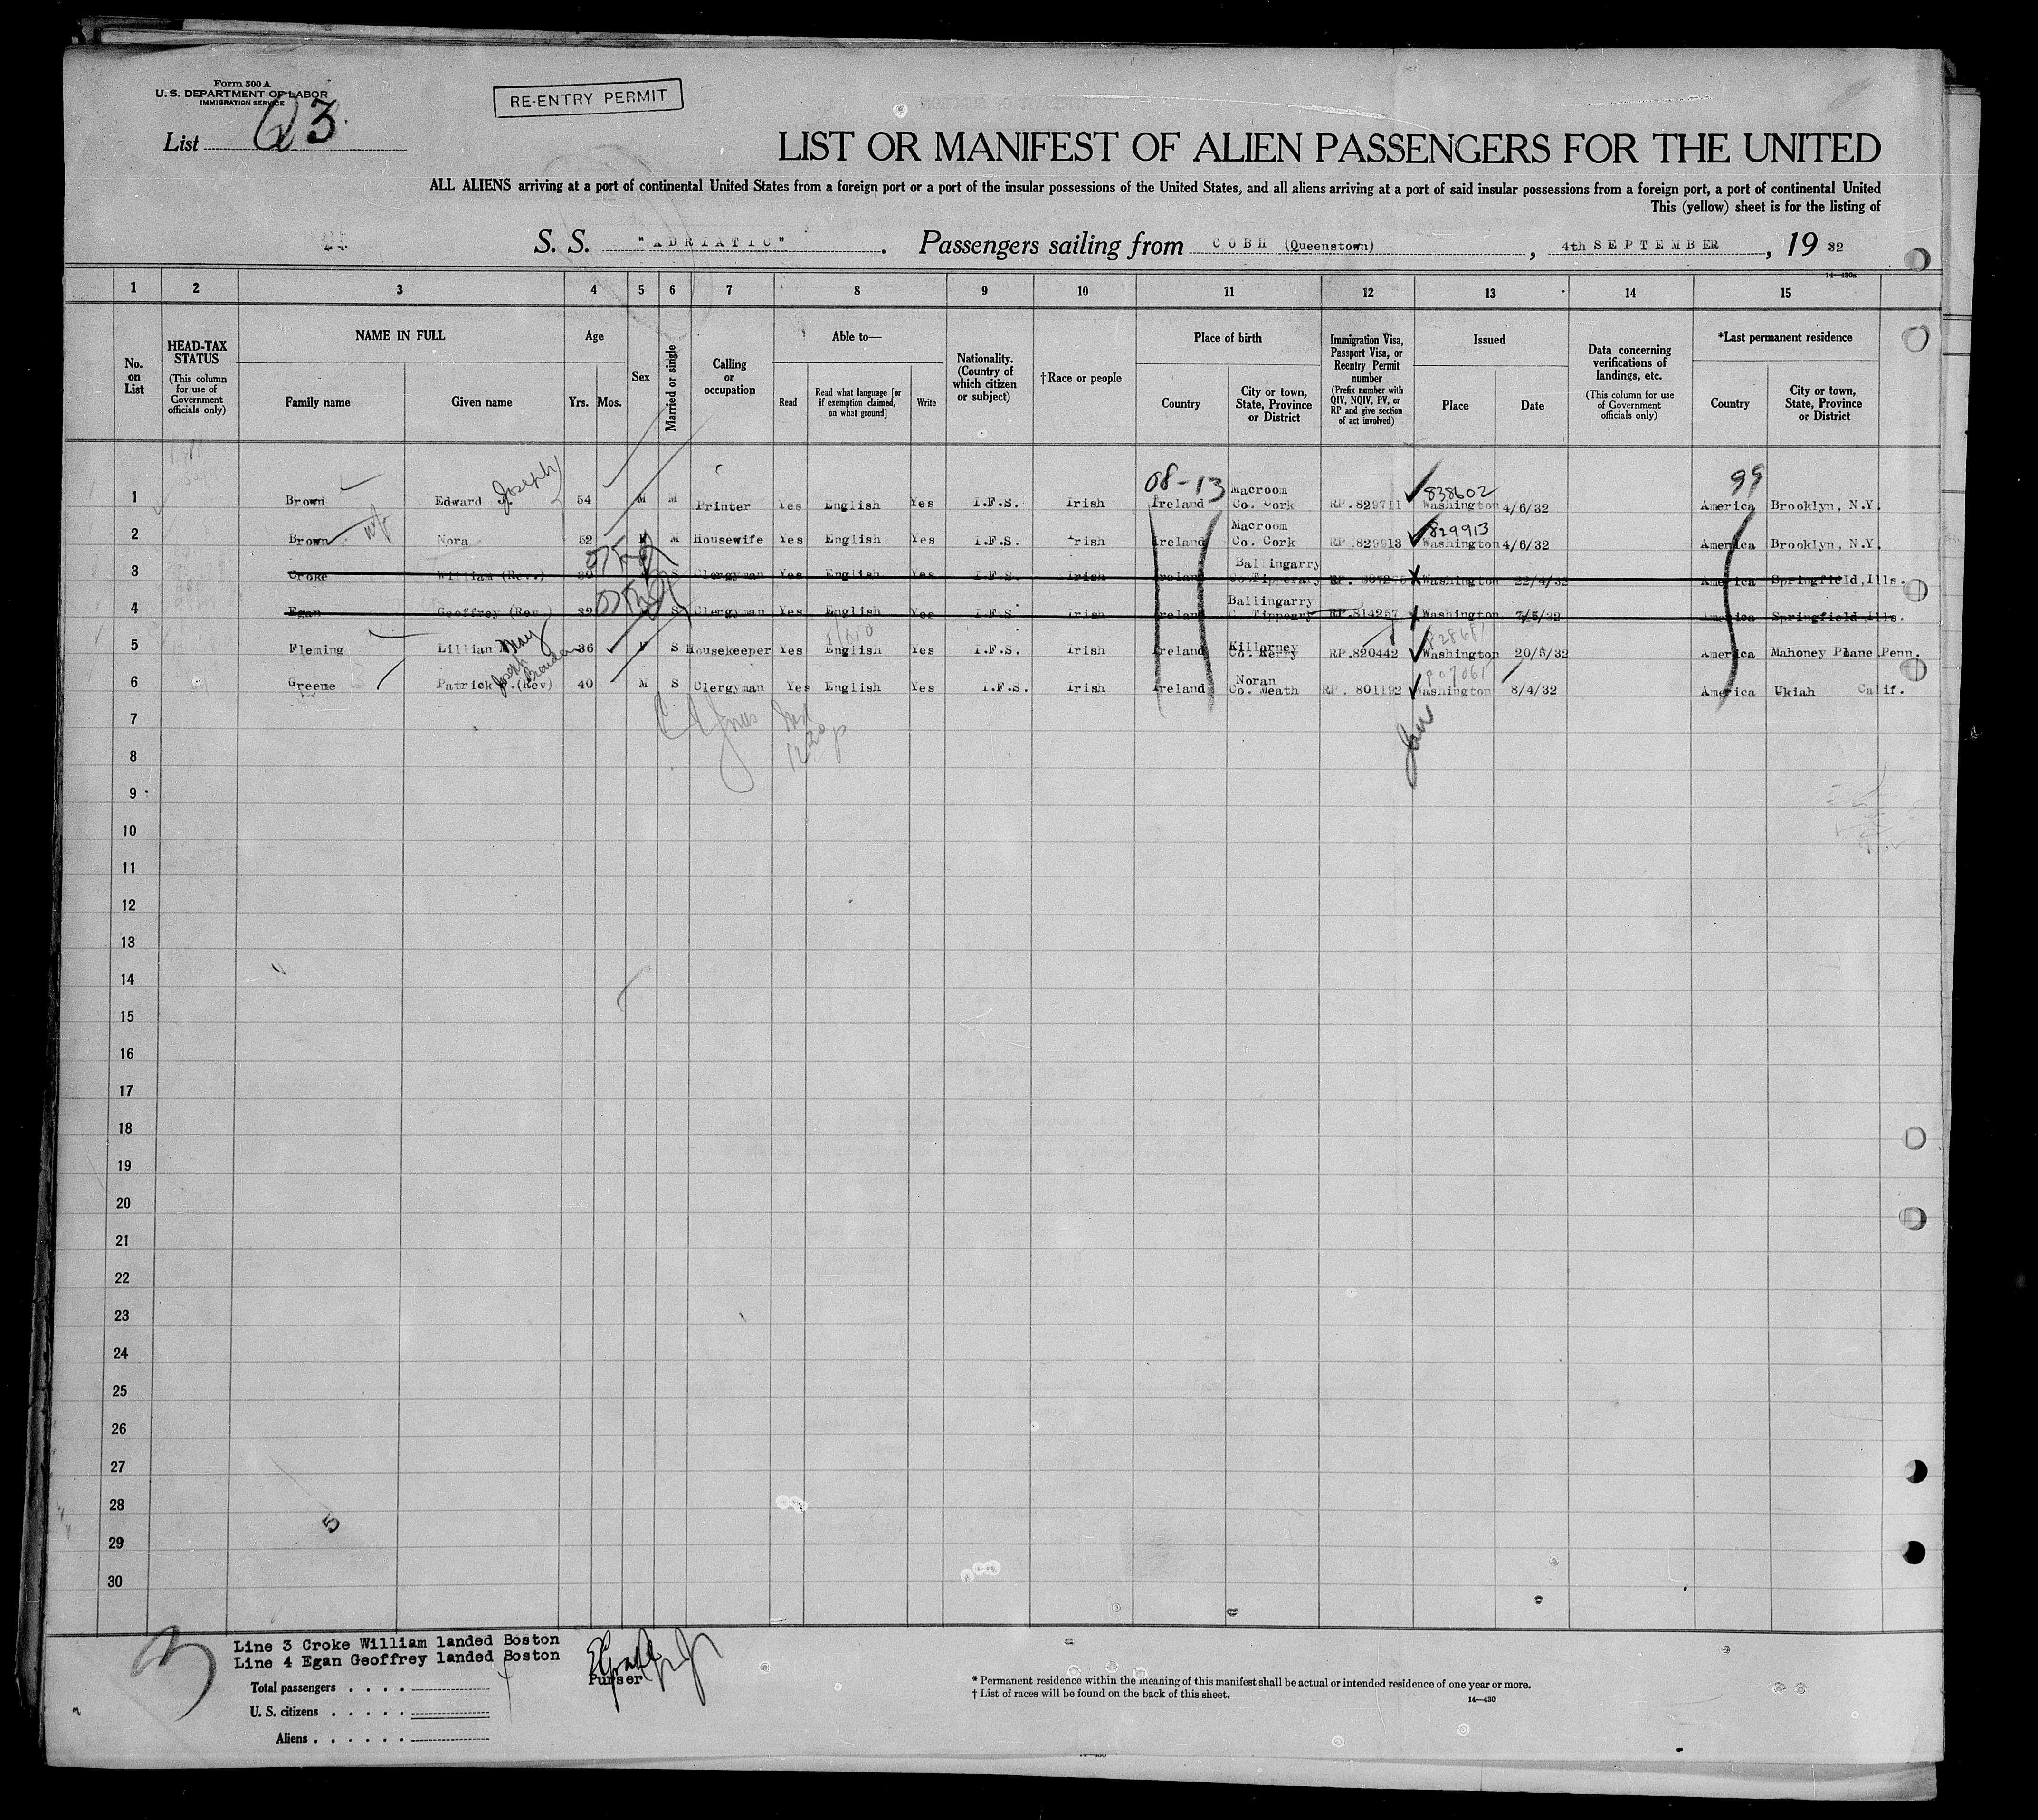 Form 500 A
U. S. DEPARTMENT OF LABOR
IMMIGRATION SERVICE
List 3
RE-ENTRY PERMIT
LIST OR MANIFEST OF ALIEN PASSENGERS FOR THE UNITED
ALL ALIENS arriving at a port of continental United States from a foreign port or a port of the insular possessions of the United States, and all aliens arriving at a port of said insular possessions from a foreign port, a port of continental United
This (yellow) sheet is for the listing of
S. S. "ADRIATIC". Passengers sailing from COBH (Queenstown), 4th SEPTEMBER, 19 32
14—430a
1 2 3 4 5 6 7 8 9 10 11 12 13 14 15
No. on List
HEAD-TAX STATUS (This column for use of Government officials only)
NAME IN FULL
Family name
Given name
Age
Yrs.
Mos.
Sex
Married or single
Calling or occupation
Able to—
Read
Read what language [or if exemption claimed, on what ground]
Write
Nationality. (Country of which citizen or subject)
†Race or people
Place of birth
Country
City or town, State, Province or District
Immigration Visa, Passport Visa, or Reentry Permit number (Prefix number with QIV, NQIV, PV, or RP and give section of act involved)
Issued
Place
Date
Data concerning verifications of landings, etc. (This column for use of Government officials only)
*Last permanent residence
Country
City or town, State, Province or District
08-13 99
1 Brown Edward J. Joseph 54 M M Printer Yes English Yes I.F.S. Irish Ireland Macroom Co. Cork RP.829711 838602 Washington 4/6/32 America Brooklyn, N.Y.
2 Brown wf Nora 52 F M Housewife Yes English Yes I.F.S. Irish Ireland Macroom Co. Cork RP.829913 829913 Washington 4/6/32 America Brooklyn, N.Y.
3 Croke William (Rev.) 30 S Clergyman Yes English Yes I.F.S. Irish Ireland Ballingarry Co Tipperary RP. Washington 22/4/32 America Springfield, Ills.
4 Egan Geoffrey (Rev.) 32 S Clergyman Yes English Yes I.F.S Irish Ireland Ballingarry C. Tippeary RP.814257 Washington 7/5/32 America Springfield Ills.
5 Fleming Lillian May 36 F S Housekeeper Yes English Yes I.F.S. Irish Ireland Killarney Co. Kerry RP.820442 Washington 20/5/32 America Mahoney Plane Penn.
6 Greene Patrick (Rev) Joseph 40 M S Clergyman Yes English Yes I.F.S. Irish Ireland Noran Co. Meath RP. 801192 Washington 8/4/32 America Ukiah Calif.
7
8
9
10
11
12
13
14
15
16
17
18
19
20
21
22
23
24
25
26
27
28
5
29
30
3
Line 3 Croke William landed Boston
Line 4 Egan Geoffrey landed Boston
Purser
Total passengers . . . .
U. S. citizens . . . . .
Aliens . . . . . .
* Permanent residence within the meaning of this manifest shall be actual or intended residence of one year or more.
† List of races will be found on the back of this sheet.
14—430